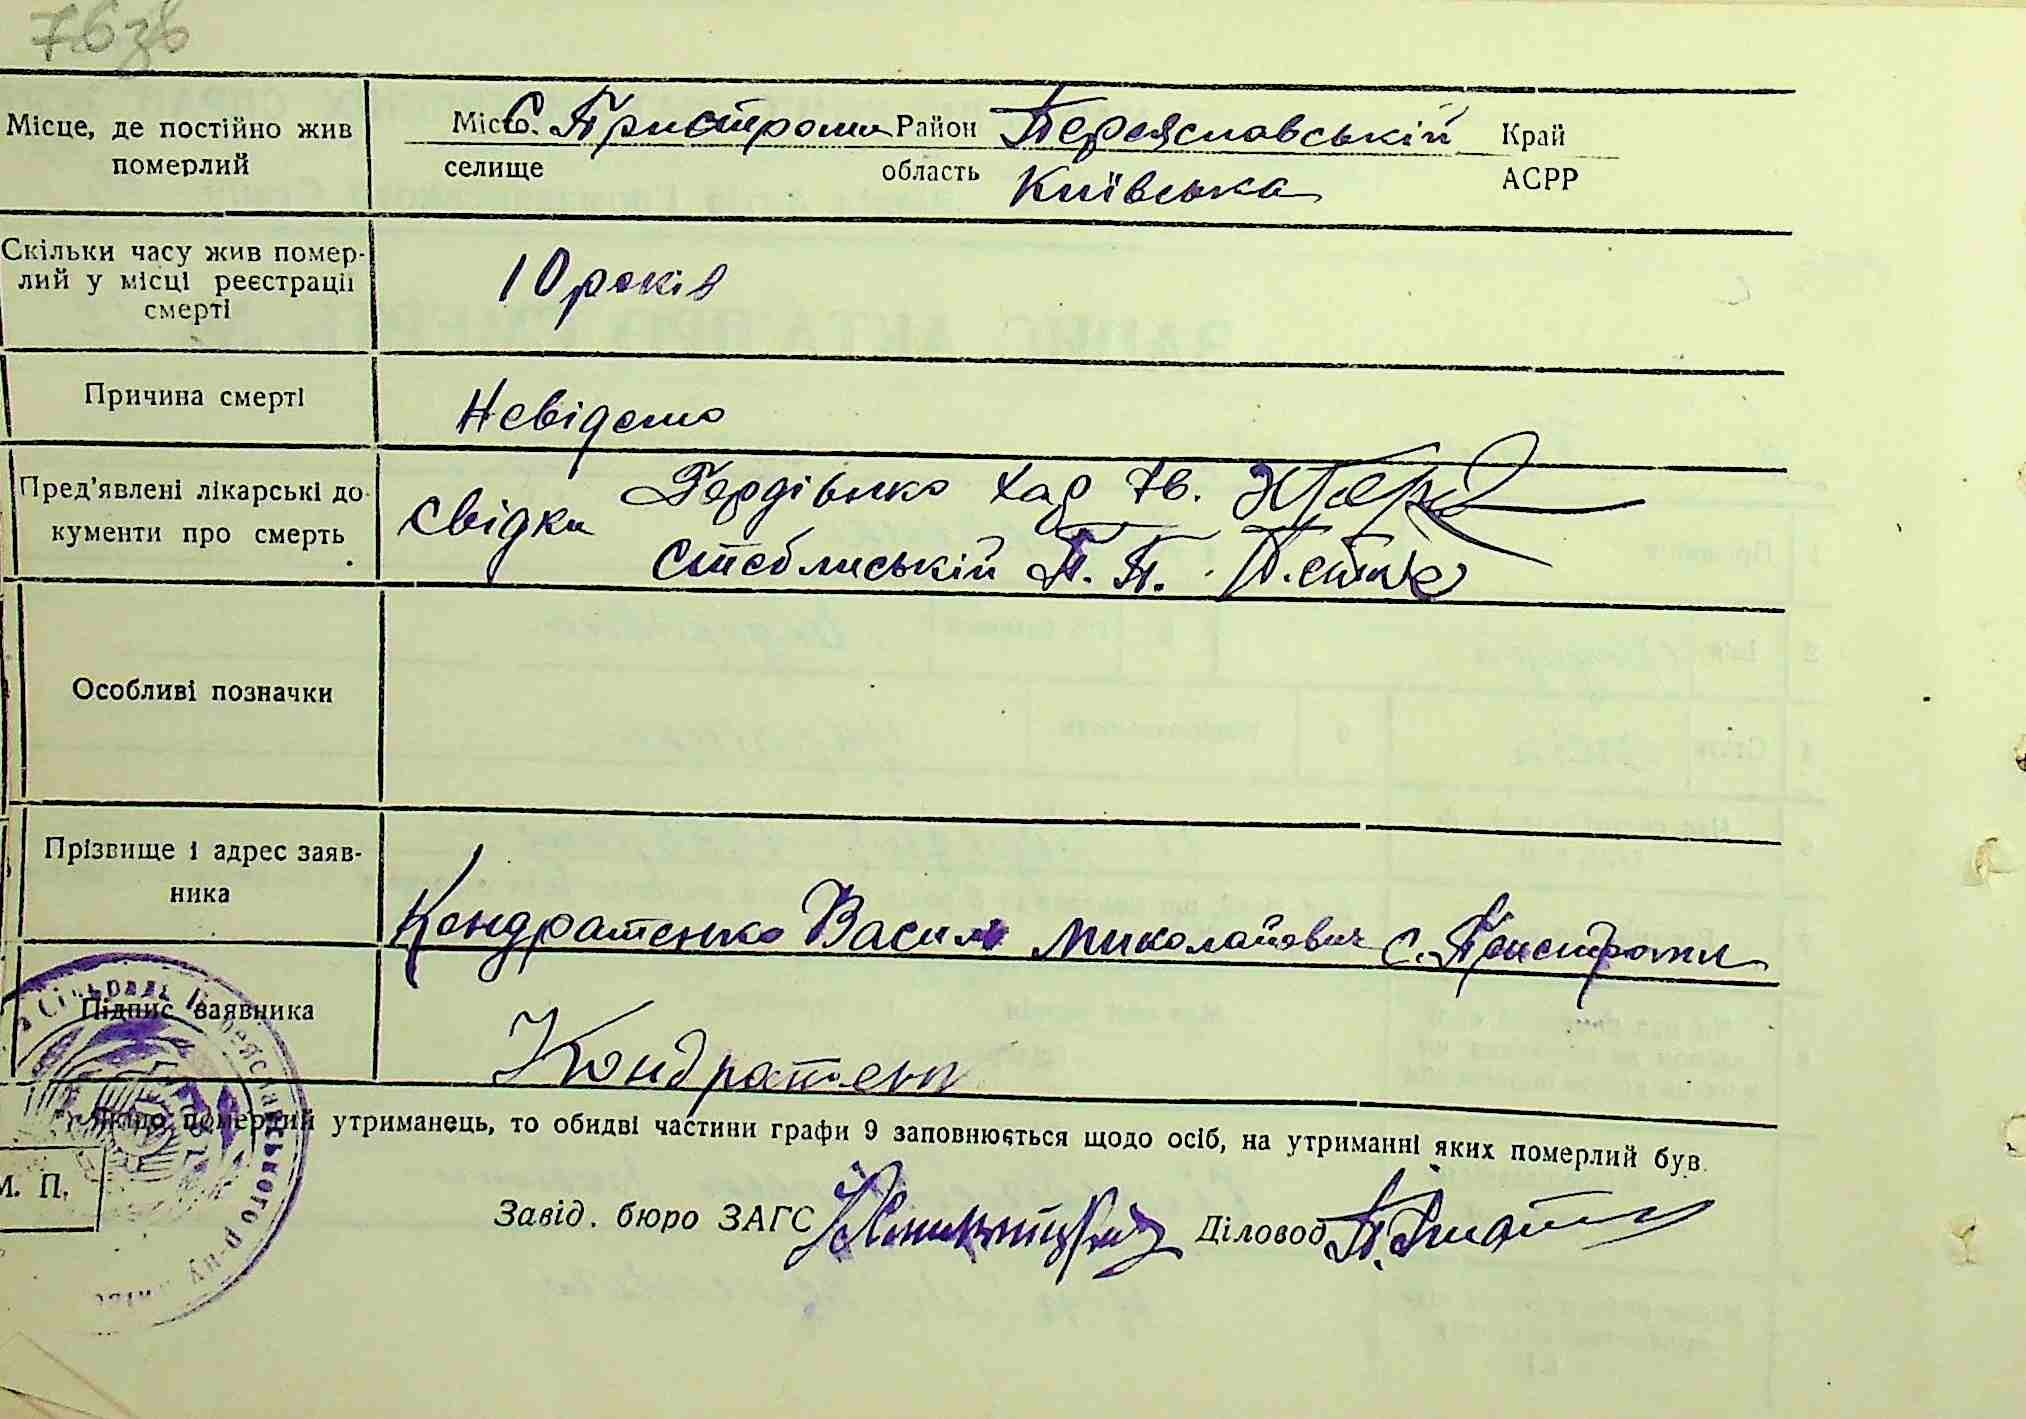 76 зв
Місце, де постійно жив
померлий
Місто С. Пристроми Район Переяславській Край
селище область Київська АСРР
Скільки часу жив помер-
лий у місці реєстрації
смерті
10 років
Причина смерті
Невідомо
Пред'явлені лікарські до-
кументи про смерть
Свідки Гордієнко
Стеблиській П. П.
Особливі позначки
Прізвище і адрес заяв-
ника
Кондратенко Василь Миколайович с. Пристроми
Підпис заявника
Кондратенк
померлий утриманець, то обидві частини графи 9 заповнюється щодо осіб, на утриманні яких померлий був.
М. П.
Завід. бюро ЗАГС Діловод